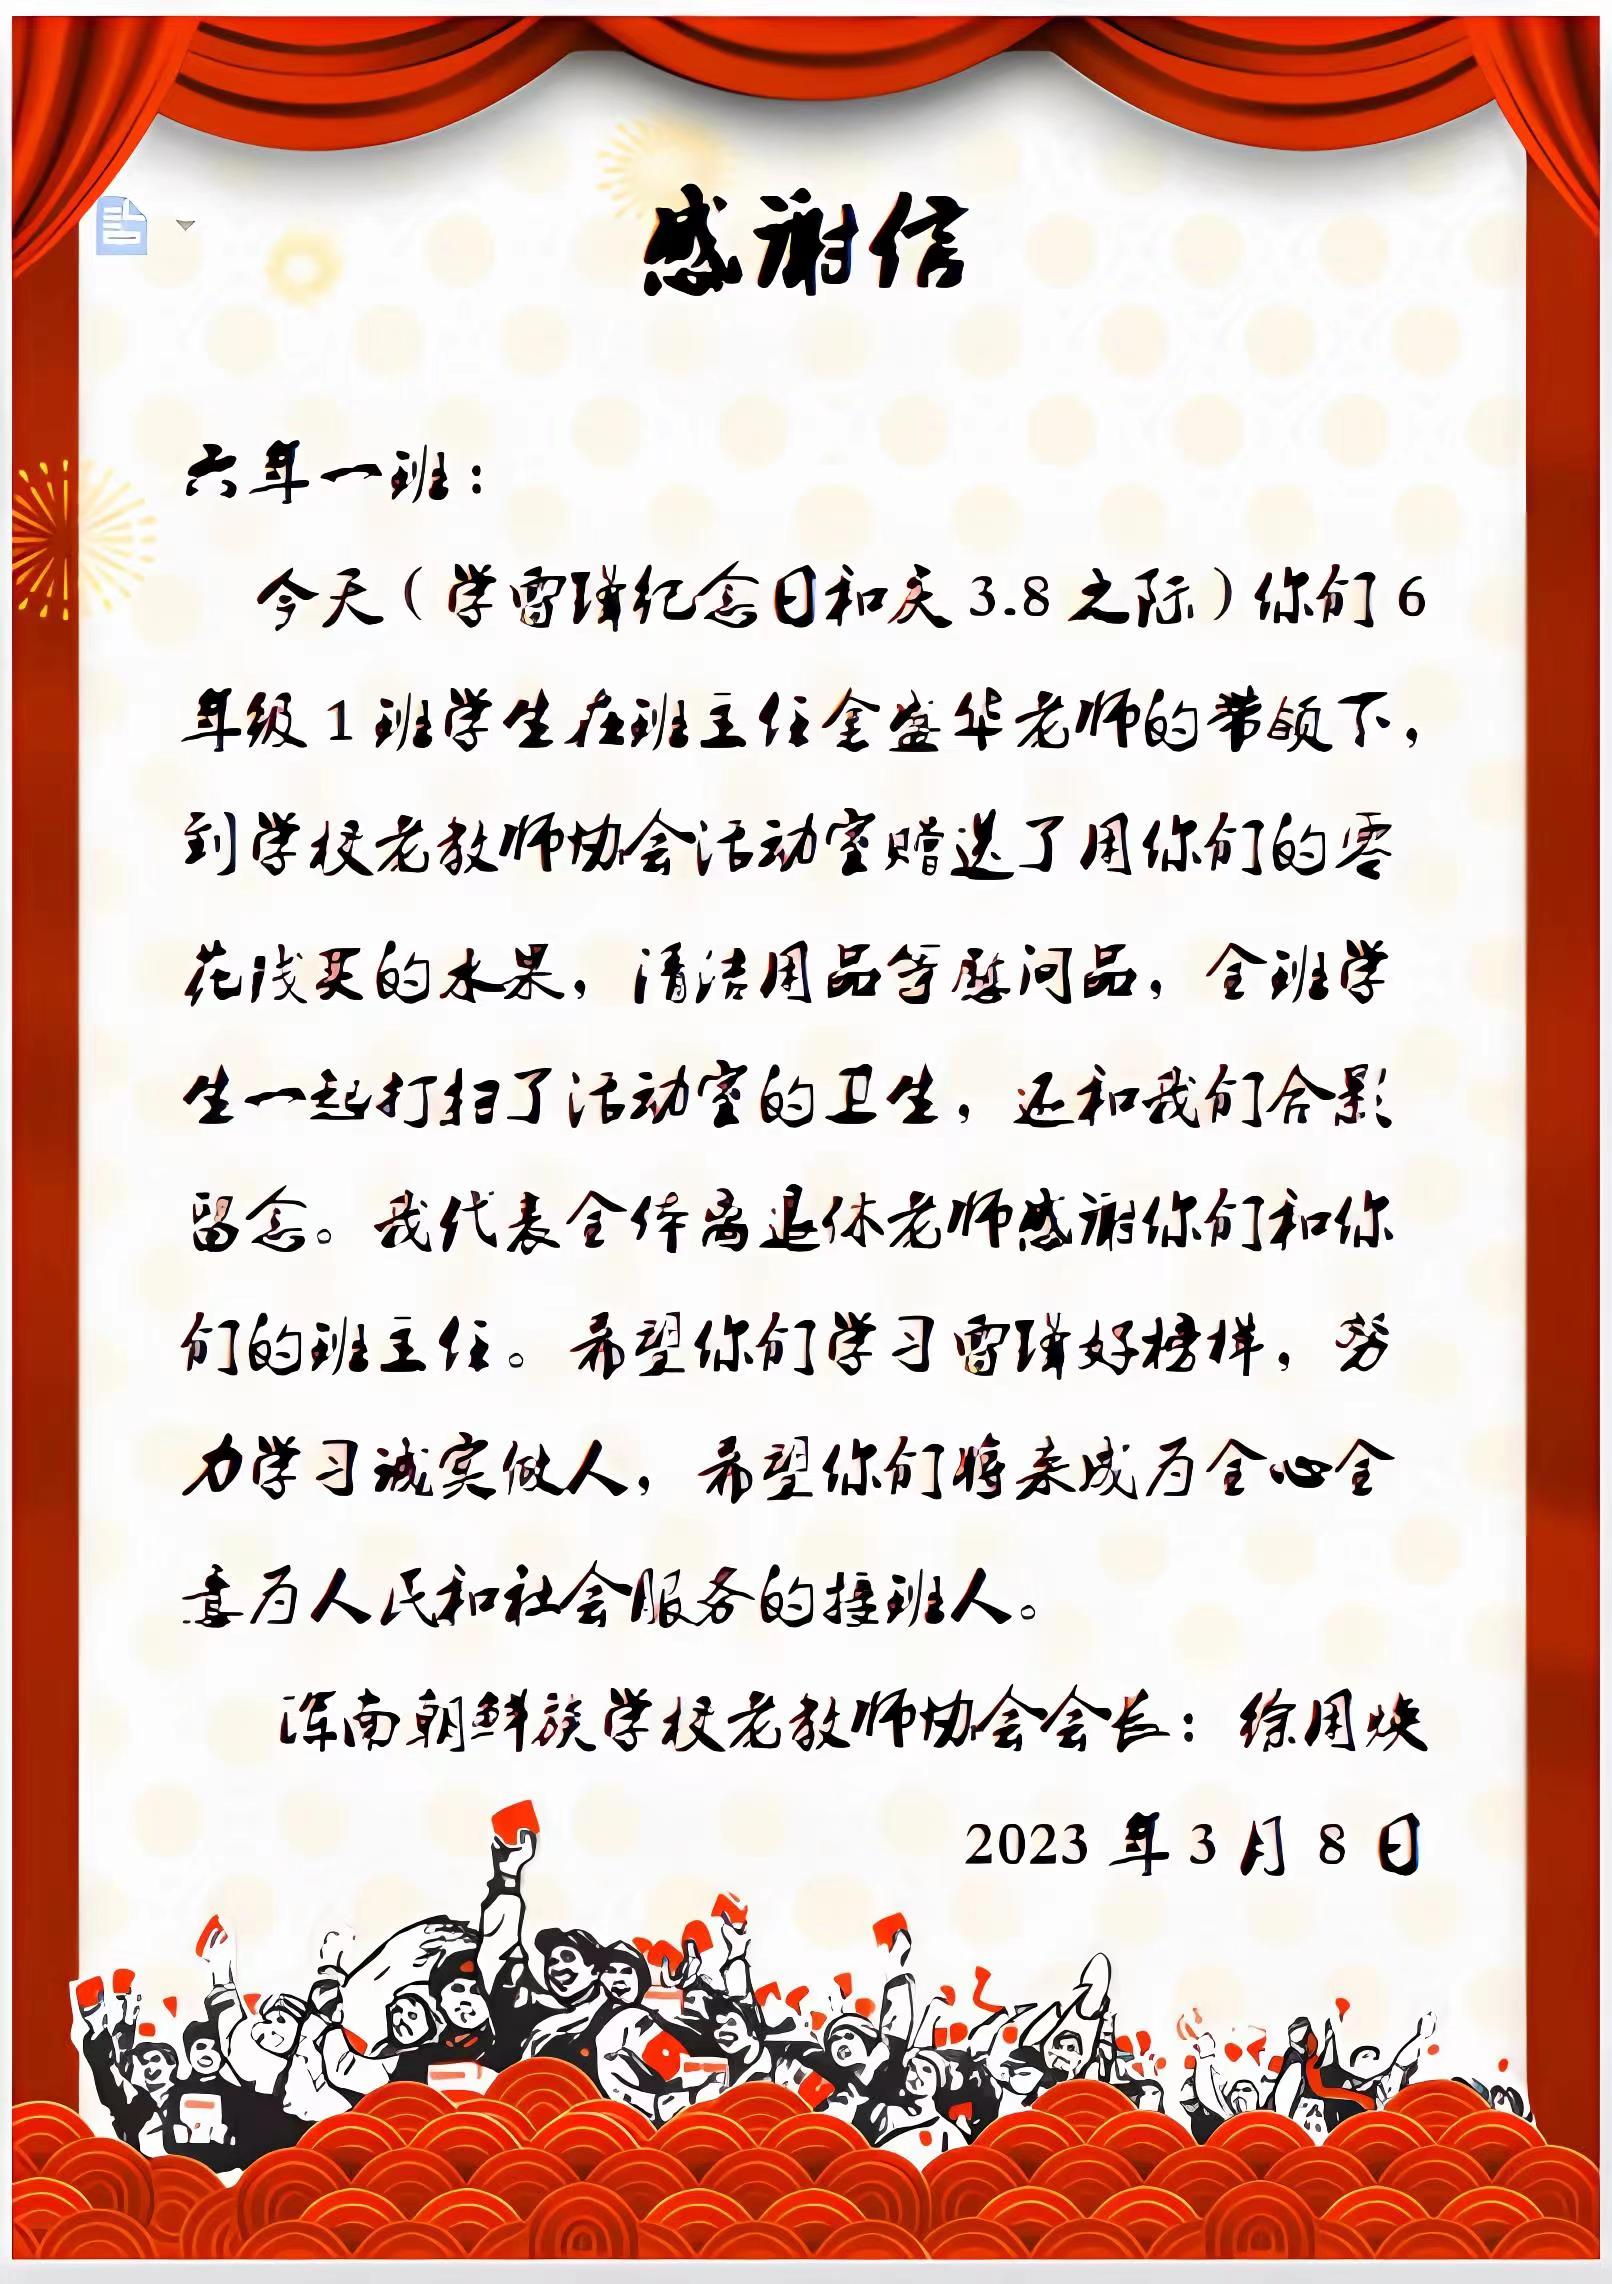 感谢信
六年一班：
今天（学雷锋纪念日和庆3.8之际）你们6
年级1班学生在班主任金盛华老师的带领下，
到学校老教师协会活动室赠送了用你们的零
花浅买的水果，清洁用品等慰问品，全班学
生一起打扫了活动室的卫生，还和我们合影
留念。我代表全体离退休老师感谢你们和你
们的班主任。希望你们学习雷锋好榜样，努
力学习诚实做人，希望你们将来成为全心全
意为人民和社会服务的接班人。
浑南朝鲜族学校老教师协会会长：徐用焕
2023年3月8日